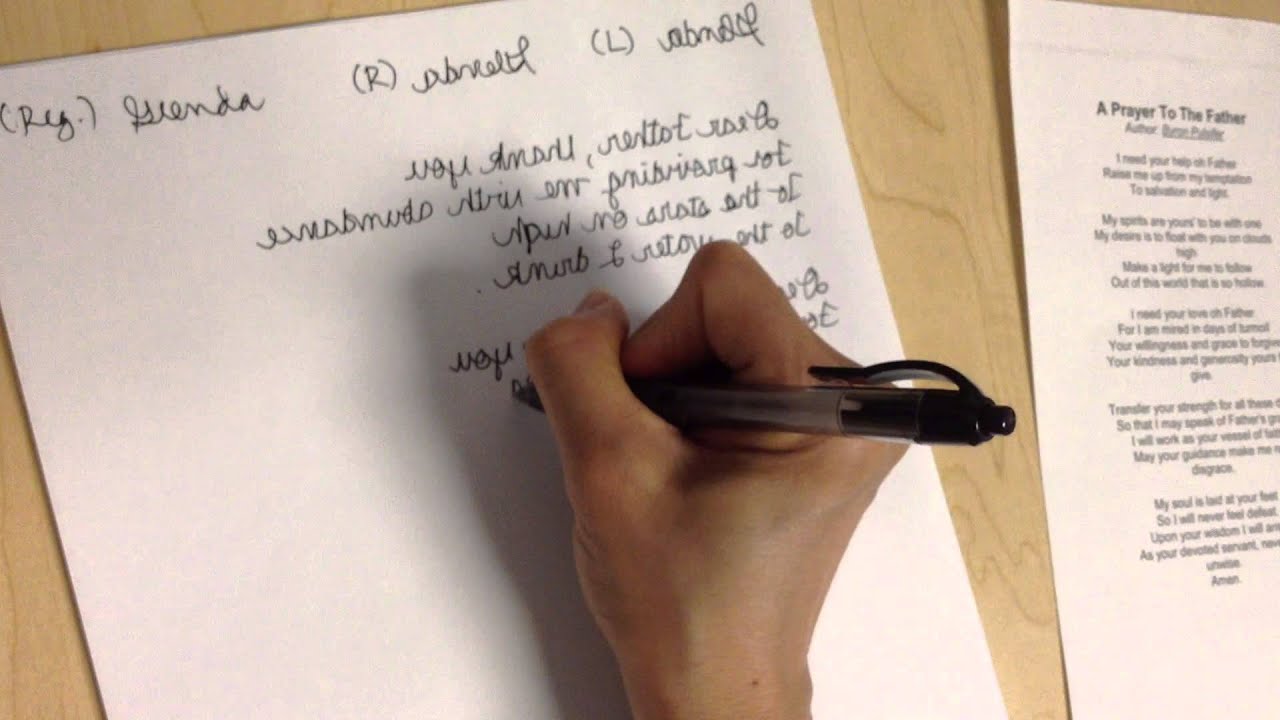 (Reg.) Glenda (R) Glenda (L) Glenda
Dear Father, thank you
for providing me with abundance
To the stars on high
To the water I drink.
Dear
For you
A Prayer To The Father
Author: Byron Pulsifer
I need your help oh Father
Raise me up from my temptation
To salvation and light.
My spirits are yours' to be with one
My desire is to float with you on clouds
high
Make a light for me to follow
Out of this world that is so hollow.
I need your love oh Father
For I am mired in days of turmoil
Your willingness and grace to forgive
Your kindness and generosity yours
give.
Transfer your strength for all these
So that I may speak of Father's
I will work as your vessel of
May your guidance make me
disgrace.
My soul is laid at your feet
So I will never feel defeat.
Upon your wisdom I will
As your devoted servant,
unwise.
Amen.